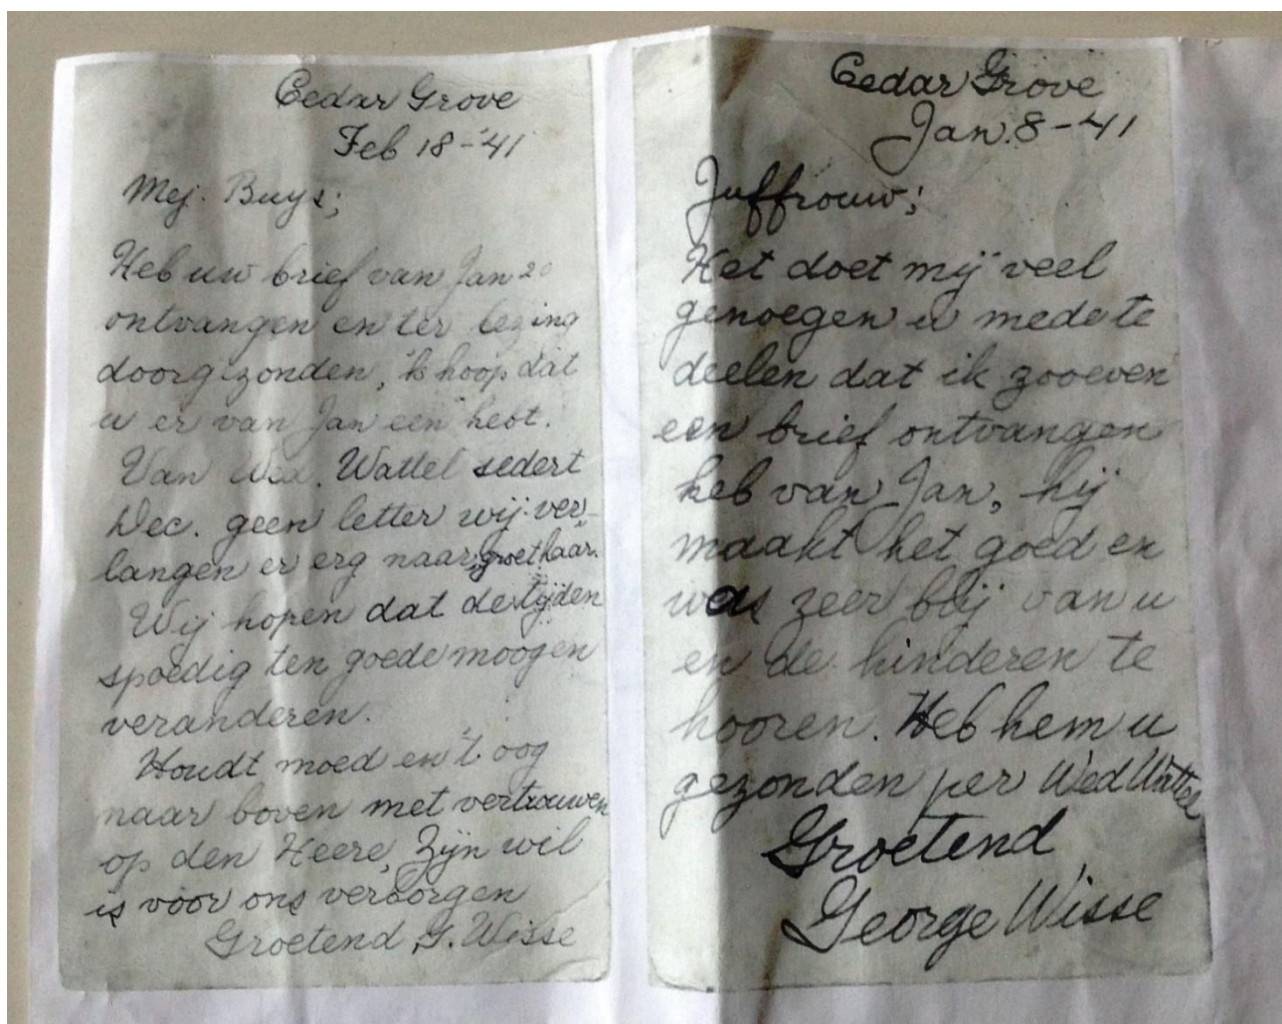 Cedar Grove
Feb 18-'41
Mej. Buys;
Heb uw brief van Jan 20
ontvangen en ter lezing
doorgezonden, 'k hoop dat
u er van Jan een hebt.
Van Wed. Wattel sedert
Dec. geen letter wij ver-
langen er erg naar, groet haar.
Wij hopen dat de tijden
spoedig ten goede moogen
veranderen.
Houdt moed en 't oog
naar boven met vertrouwen
op den Heere, Zijn wil
is voor ons verborgen
Groetend G. Wisse
Cedar Grove
Jan. 8-41
Juffrouw;
Het doet mij veel
genoegen u mede te
deelen dat ik zooeven
een brief ontvangen
heb van Jan, hij
maakt het goed en
was zeer blij van u
en de kinderen te
hooren. Heb hem u
gezonden per Wed Wattel
Groetend
George Wisse